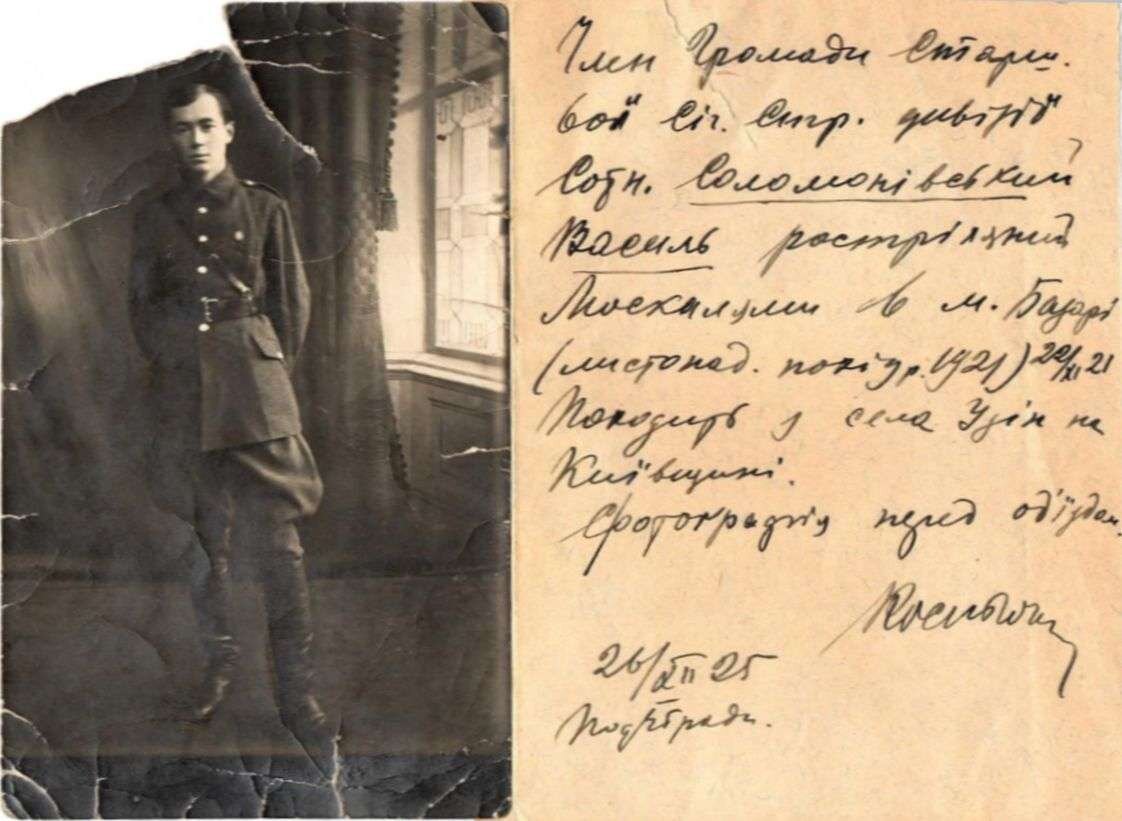 Член Громади Старш.
бой Січ. Стр. дивізії
Сотн. Соломонівський
Василь розстріляний
Москалями в м. Базарі
(листопад. похід р. 1921) 22/XI 21
Походить з села Узін на
Київщині.
Фотографія перед од'їздом.
26/XII 25
Подєбради.